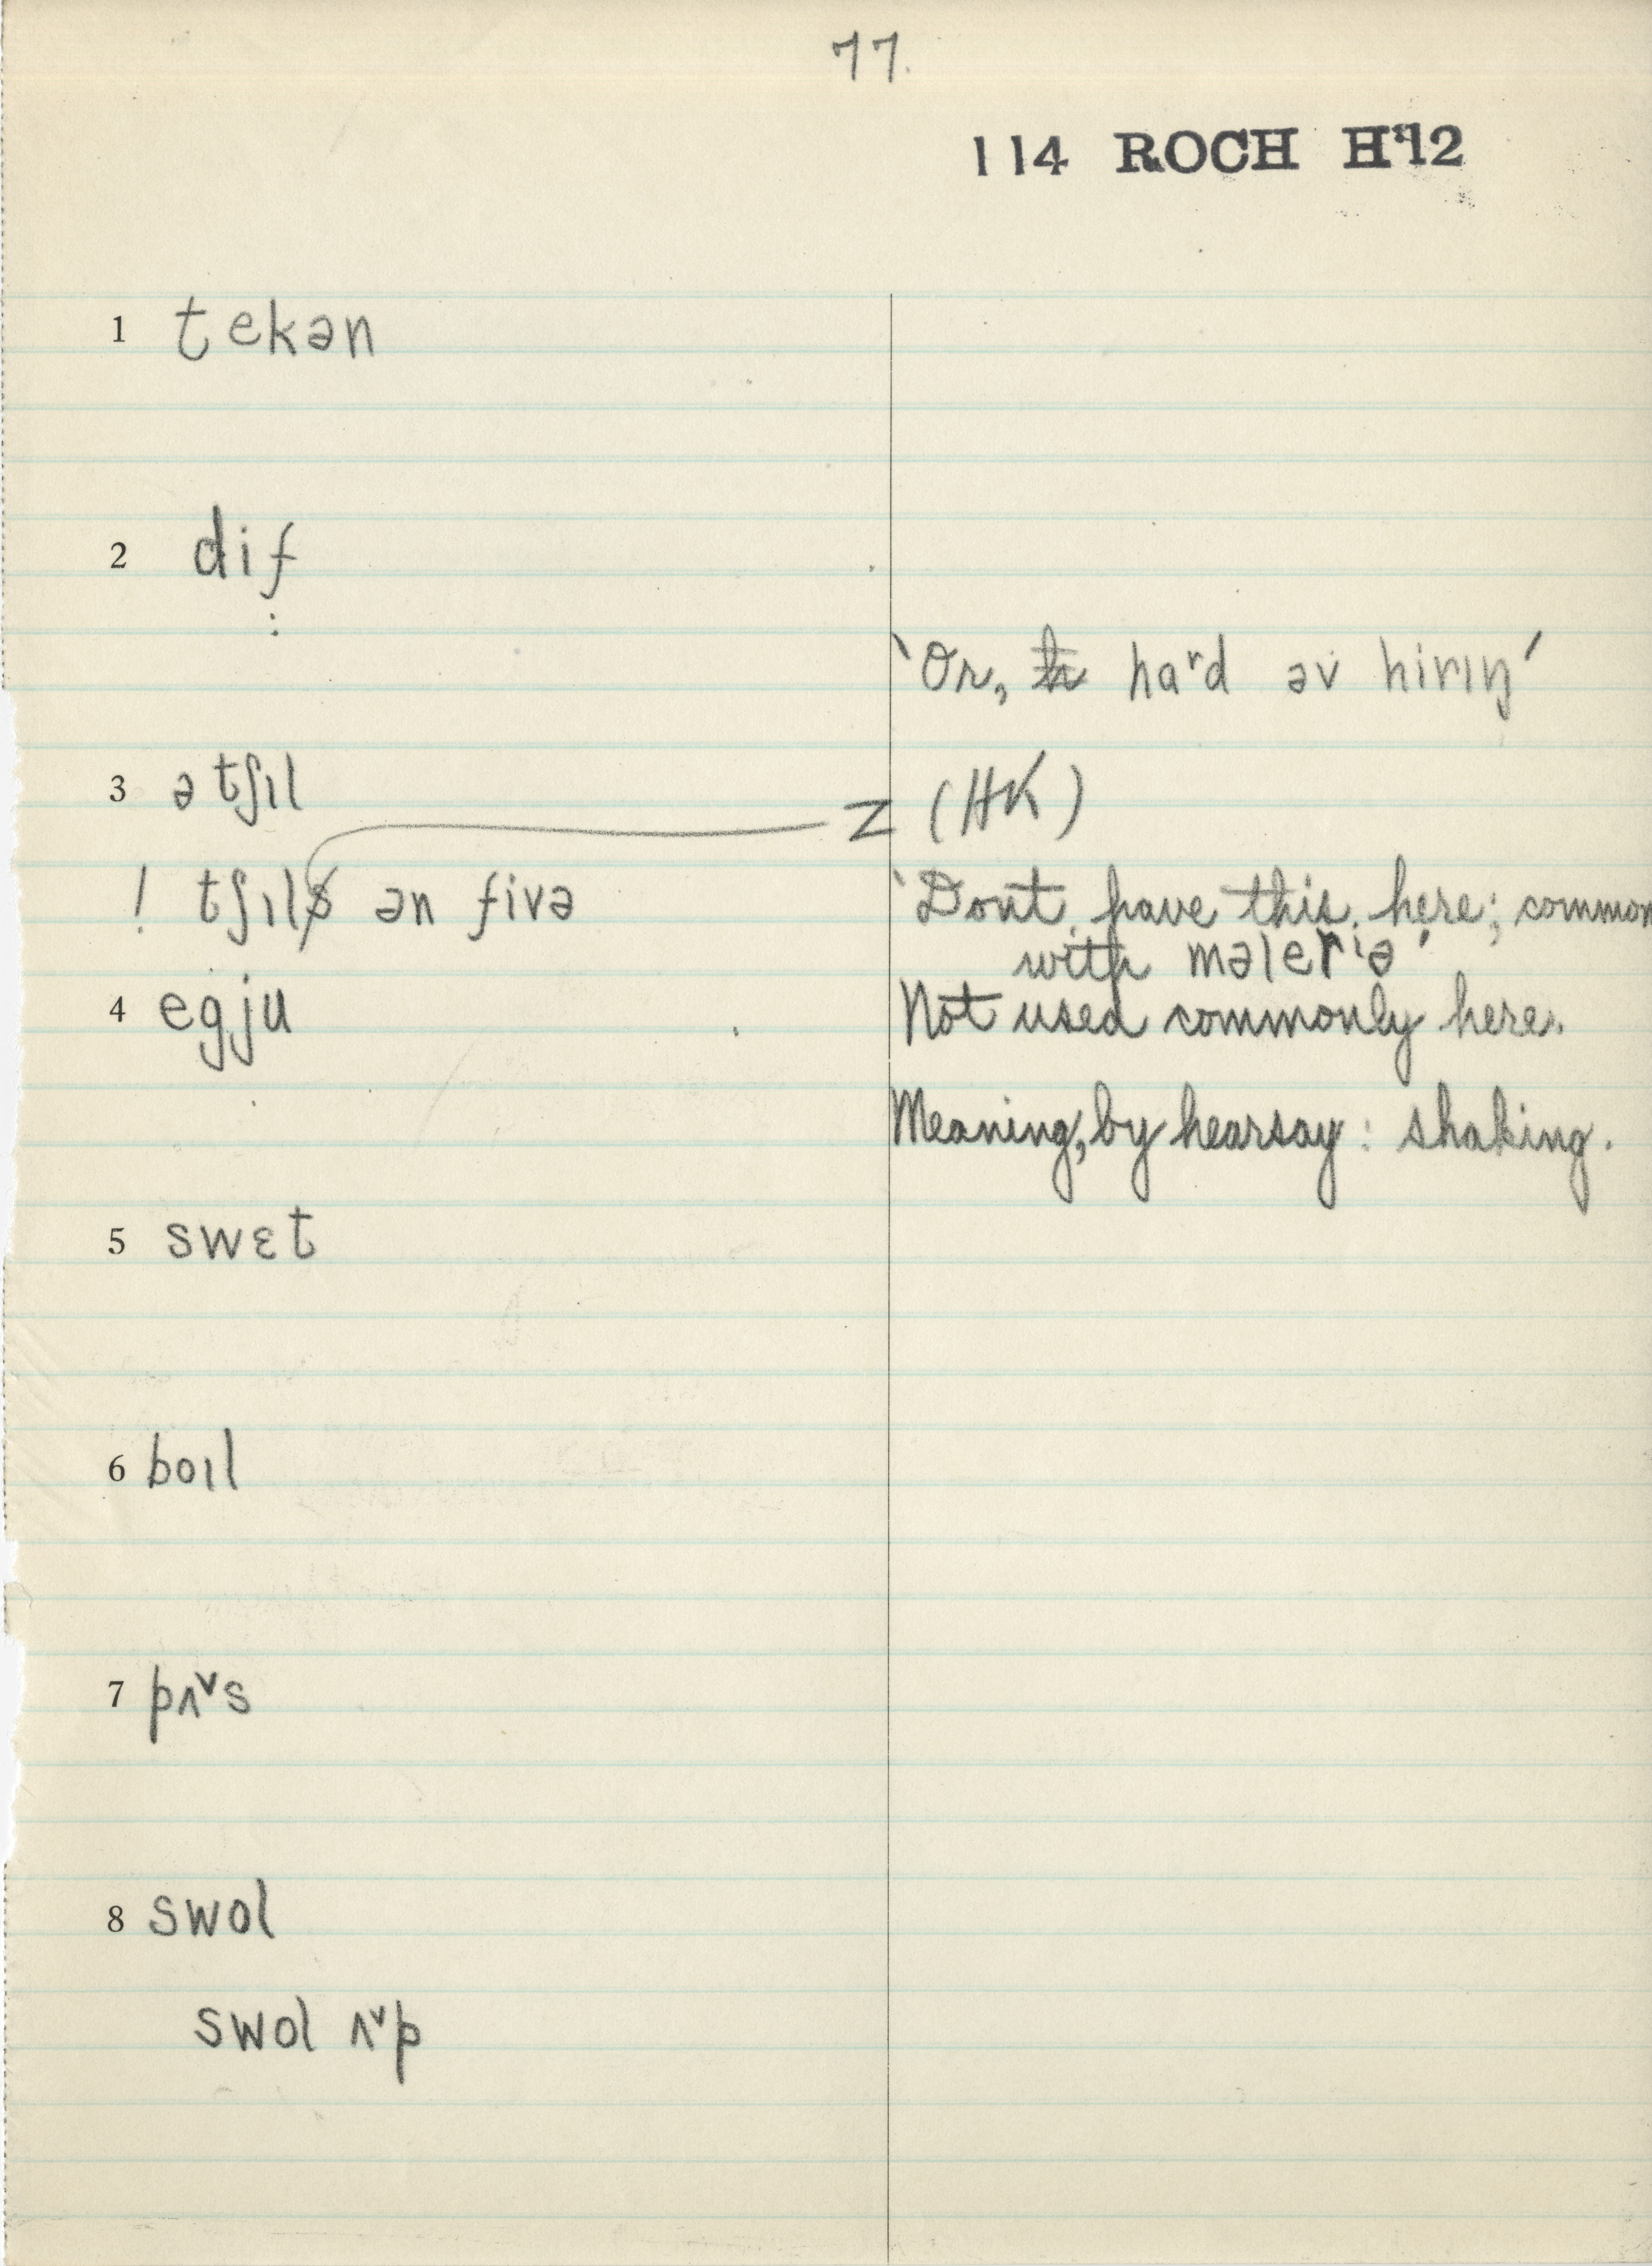 77.
114 ROCH H'12
1 tekən
2 dif
:
‵Or, h haʳd əv hirıŋ′
3 ə tʃıl
z (HK)
! tʃıls ən fivə
‵Dont have this here; common
with məleriə′
4 egju
Not used commonly here.
Meaning, by hearsay : shaking.
5 swɛt
6 boıl
7 pʌ˅s
8 swol
swol ʌ˅p